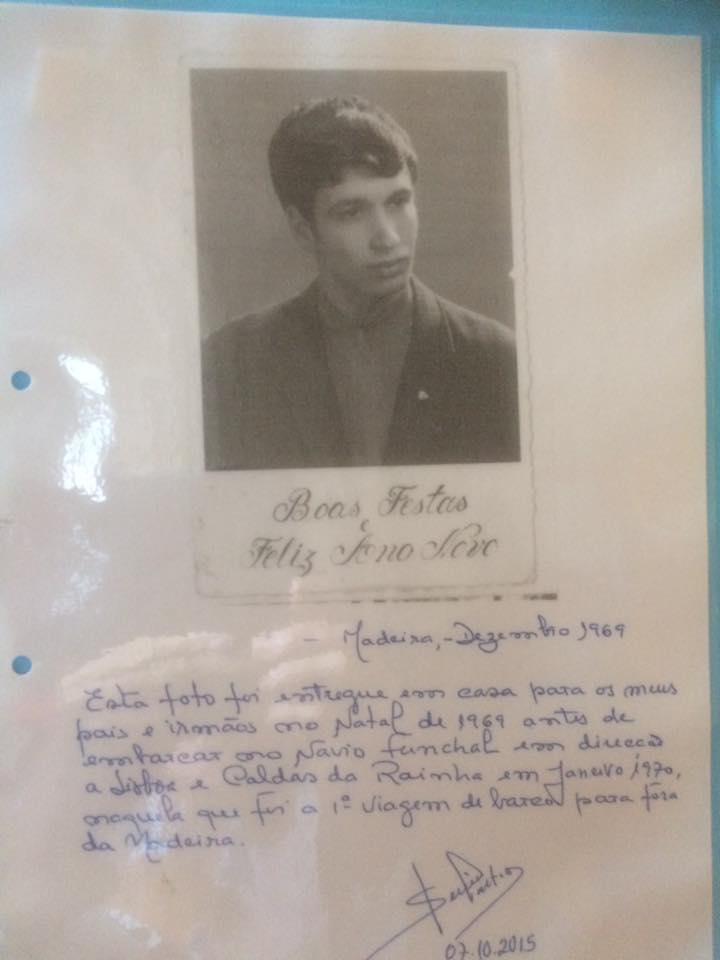 Boas Festas
e
Feliz Ano Novo
- Madeira, - Dezembro 1969
Esta foto foi entregue em casa para os meus
pais e irmãos no Natal de 1969 antes de
embarcar no Navio Funchal em direcção
a Lisboa e Caldas da Rainha em Janeiro 1970,
naquela que foi a 1ª viagem de barco para fora
da Madeira.
07.10.2015